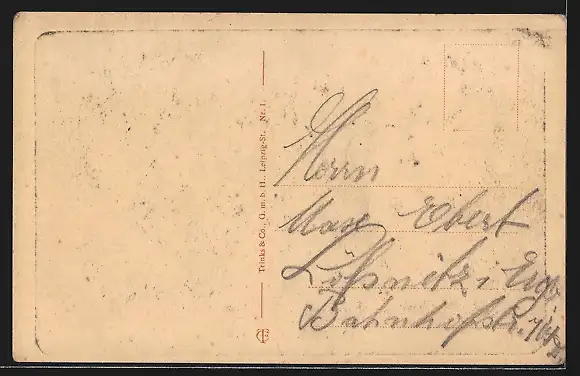 Trinks & Co., G. m. b. H., Leipzig-St. Nr. 1.
Herrn
Max Ebert
Lößnitz i Erzg.
Bahnhofstr.